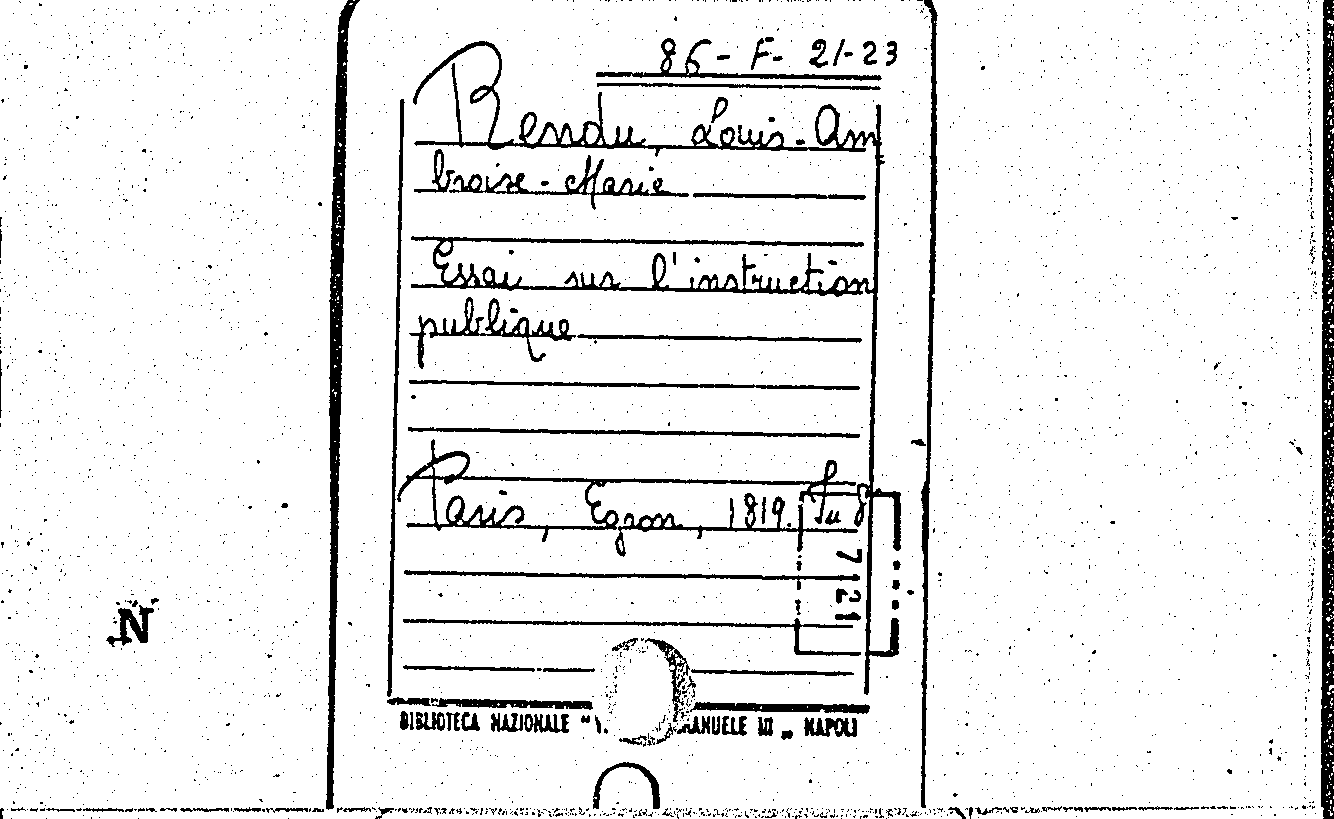 86-F-21-23
Rendu, Louis-Am
broise-Marie
Essai sur l'instruction
publique
Paris, Egron, 1819. In 8
7121
N
BIBLIOTECA NAZIONALE "V. MANUELE III „ NAPOLI